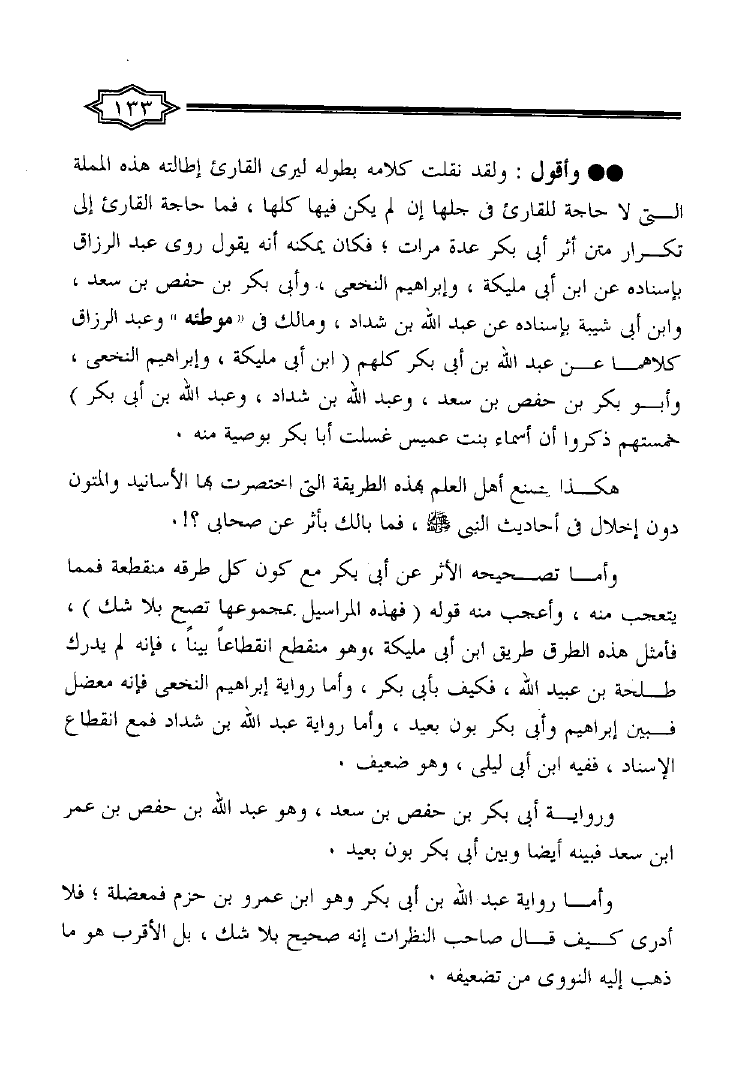 ١٣٣
●● وأقول : ولقد نقلت كلامه بطوله ليرى القارئ إطالته هذه المملة
التى لا حاجة للقارئ فى جلها إن لم يكن فيها كلها ، فما حاجة القارئ إلى
تكرار متن أثر أبى بكر عدة مرات ؛ فكان يمكنه أنه يقول روى عبد الرزاق
بإسناده عن ابن أبى مليكة ، وإبراهيم النخعى ، وأبى بكر بن حفص بن سعد ،
وابن أبى شيبة بإسناده عن عبد الله بن شداد ، ومالك فى «موطئه» وعبد الرزاق
كلاهما عن عبد الله بن أبى بكر كلهم ( ابن أبى مليكة ، وإبراهيم النخعى ،
وأبو بكر بن حفص بن سعد ، وعبد الله بن شداد ، وعبد الله بن أبى بكر )
خمستهم ذكروا أن أسماء بنت عميس غسلت أبا بكر بوصية منه .
هكذا يصنع أهل العلم بهذه الطريقة التى اختصرت بها الأسانيد والمتون
دون إخلال فى أحاديث النبى ﷺ ، فما بالك بأثر عن صحابى ؟!.
وأما تصحيحه الأثر عن أبى بكر مع كون كل طرقه منقطعة فمما
يتعجب منه ، وأعجب منه قوله ( فهذه المراسيل بمجموعها تصح بلا شك ) ،
فأمثل هذه الطرق طريق ابن أبى مليكة ،وهو منقطع انقطاعاً بيناً ، فإنه لم يدرك
طلحة بن عبيد الله ، فكيف بأبى بكر ، وأما رواية إبراهيم النخعى فإنه معضل
فبين إبراهيم وأبى بكر بون بعيد ، وأما رواية عبد الله بن شداد فمع انقطاع
الإسناد ، ففيه ابن أبى ليلى ، وهو ضعيف .
ورواية أبى بكر بن حفص بن سعد ، وهو عبد الله بن حفص بن عمر
ابن سعد فبينه أيضا وبين أبى بكر بون بعيد .
وأما رواية عبد الله بن أبى بكر وهو ابن عمرو بن حزم فمعضلة ؛ فلا
أدرى كيف قال صاحب النظرات إنه صحيح بلا شك ، بل الأقرب هو ما
ذهب إليه النووى من تضعيفه .